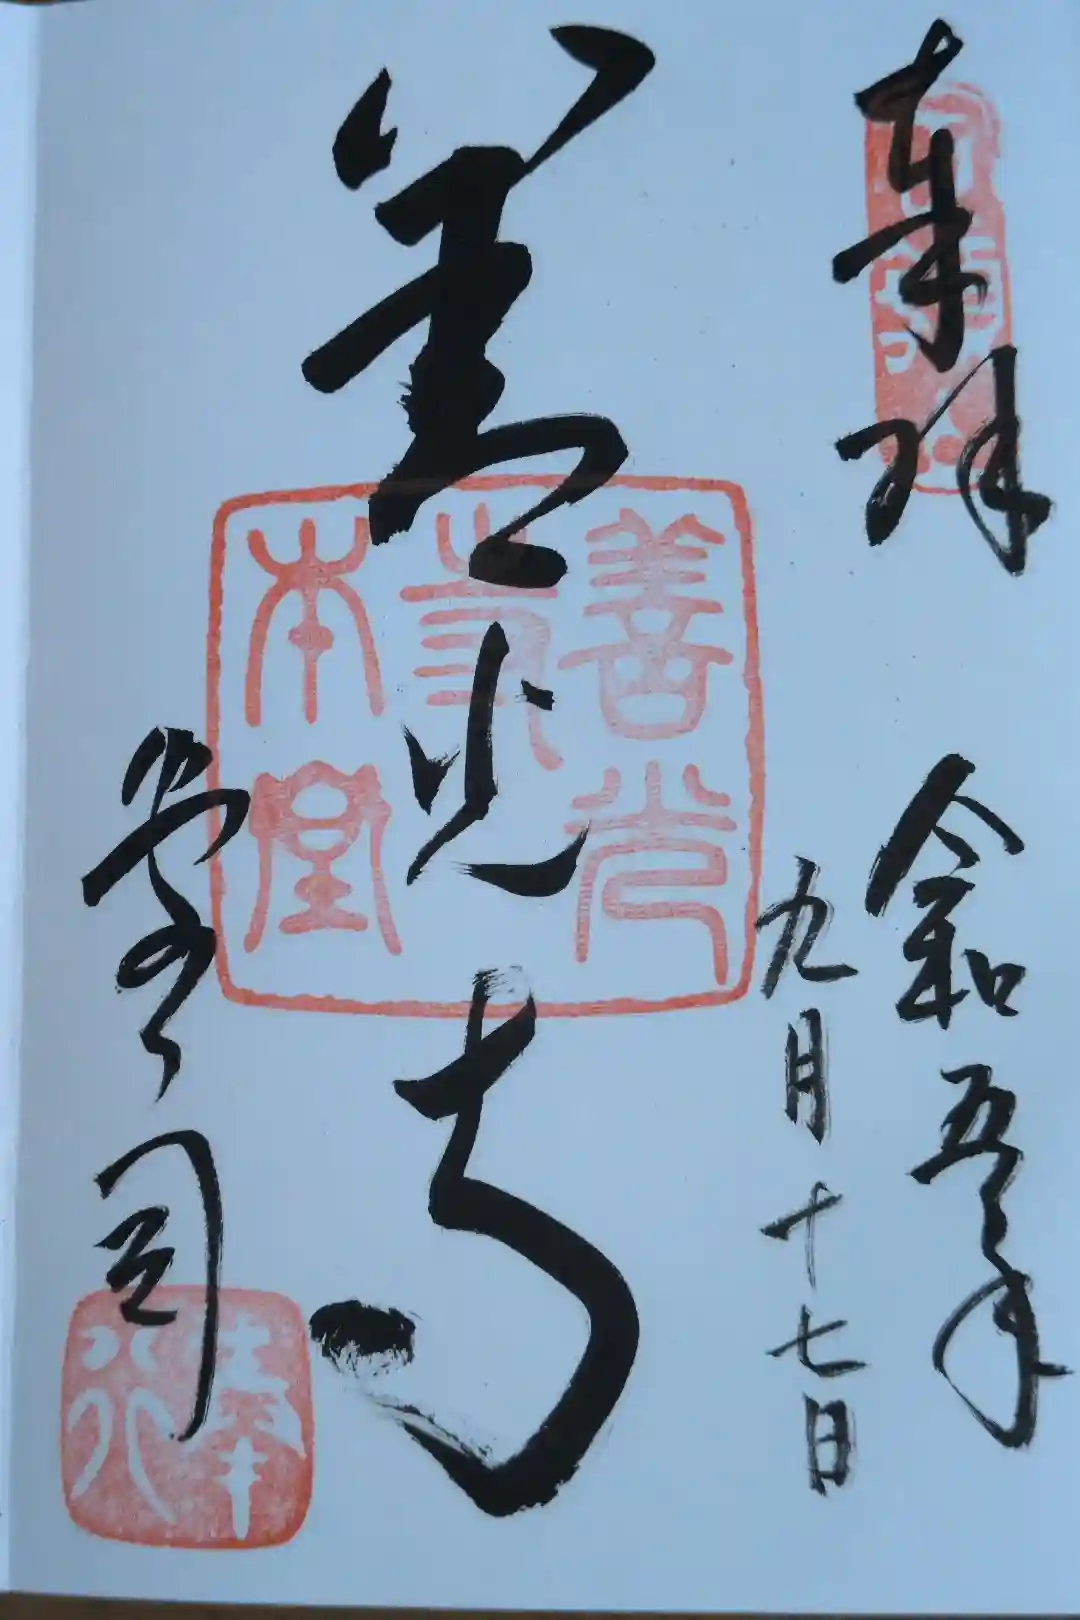 奉拝
令和五年
九月十七日
善光寺
堂司
善光
寺
本堂